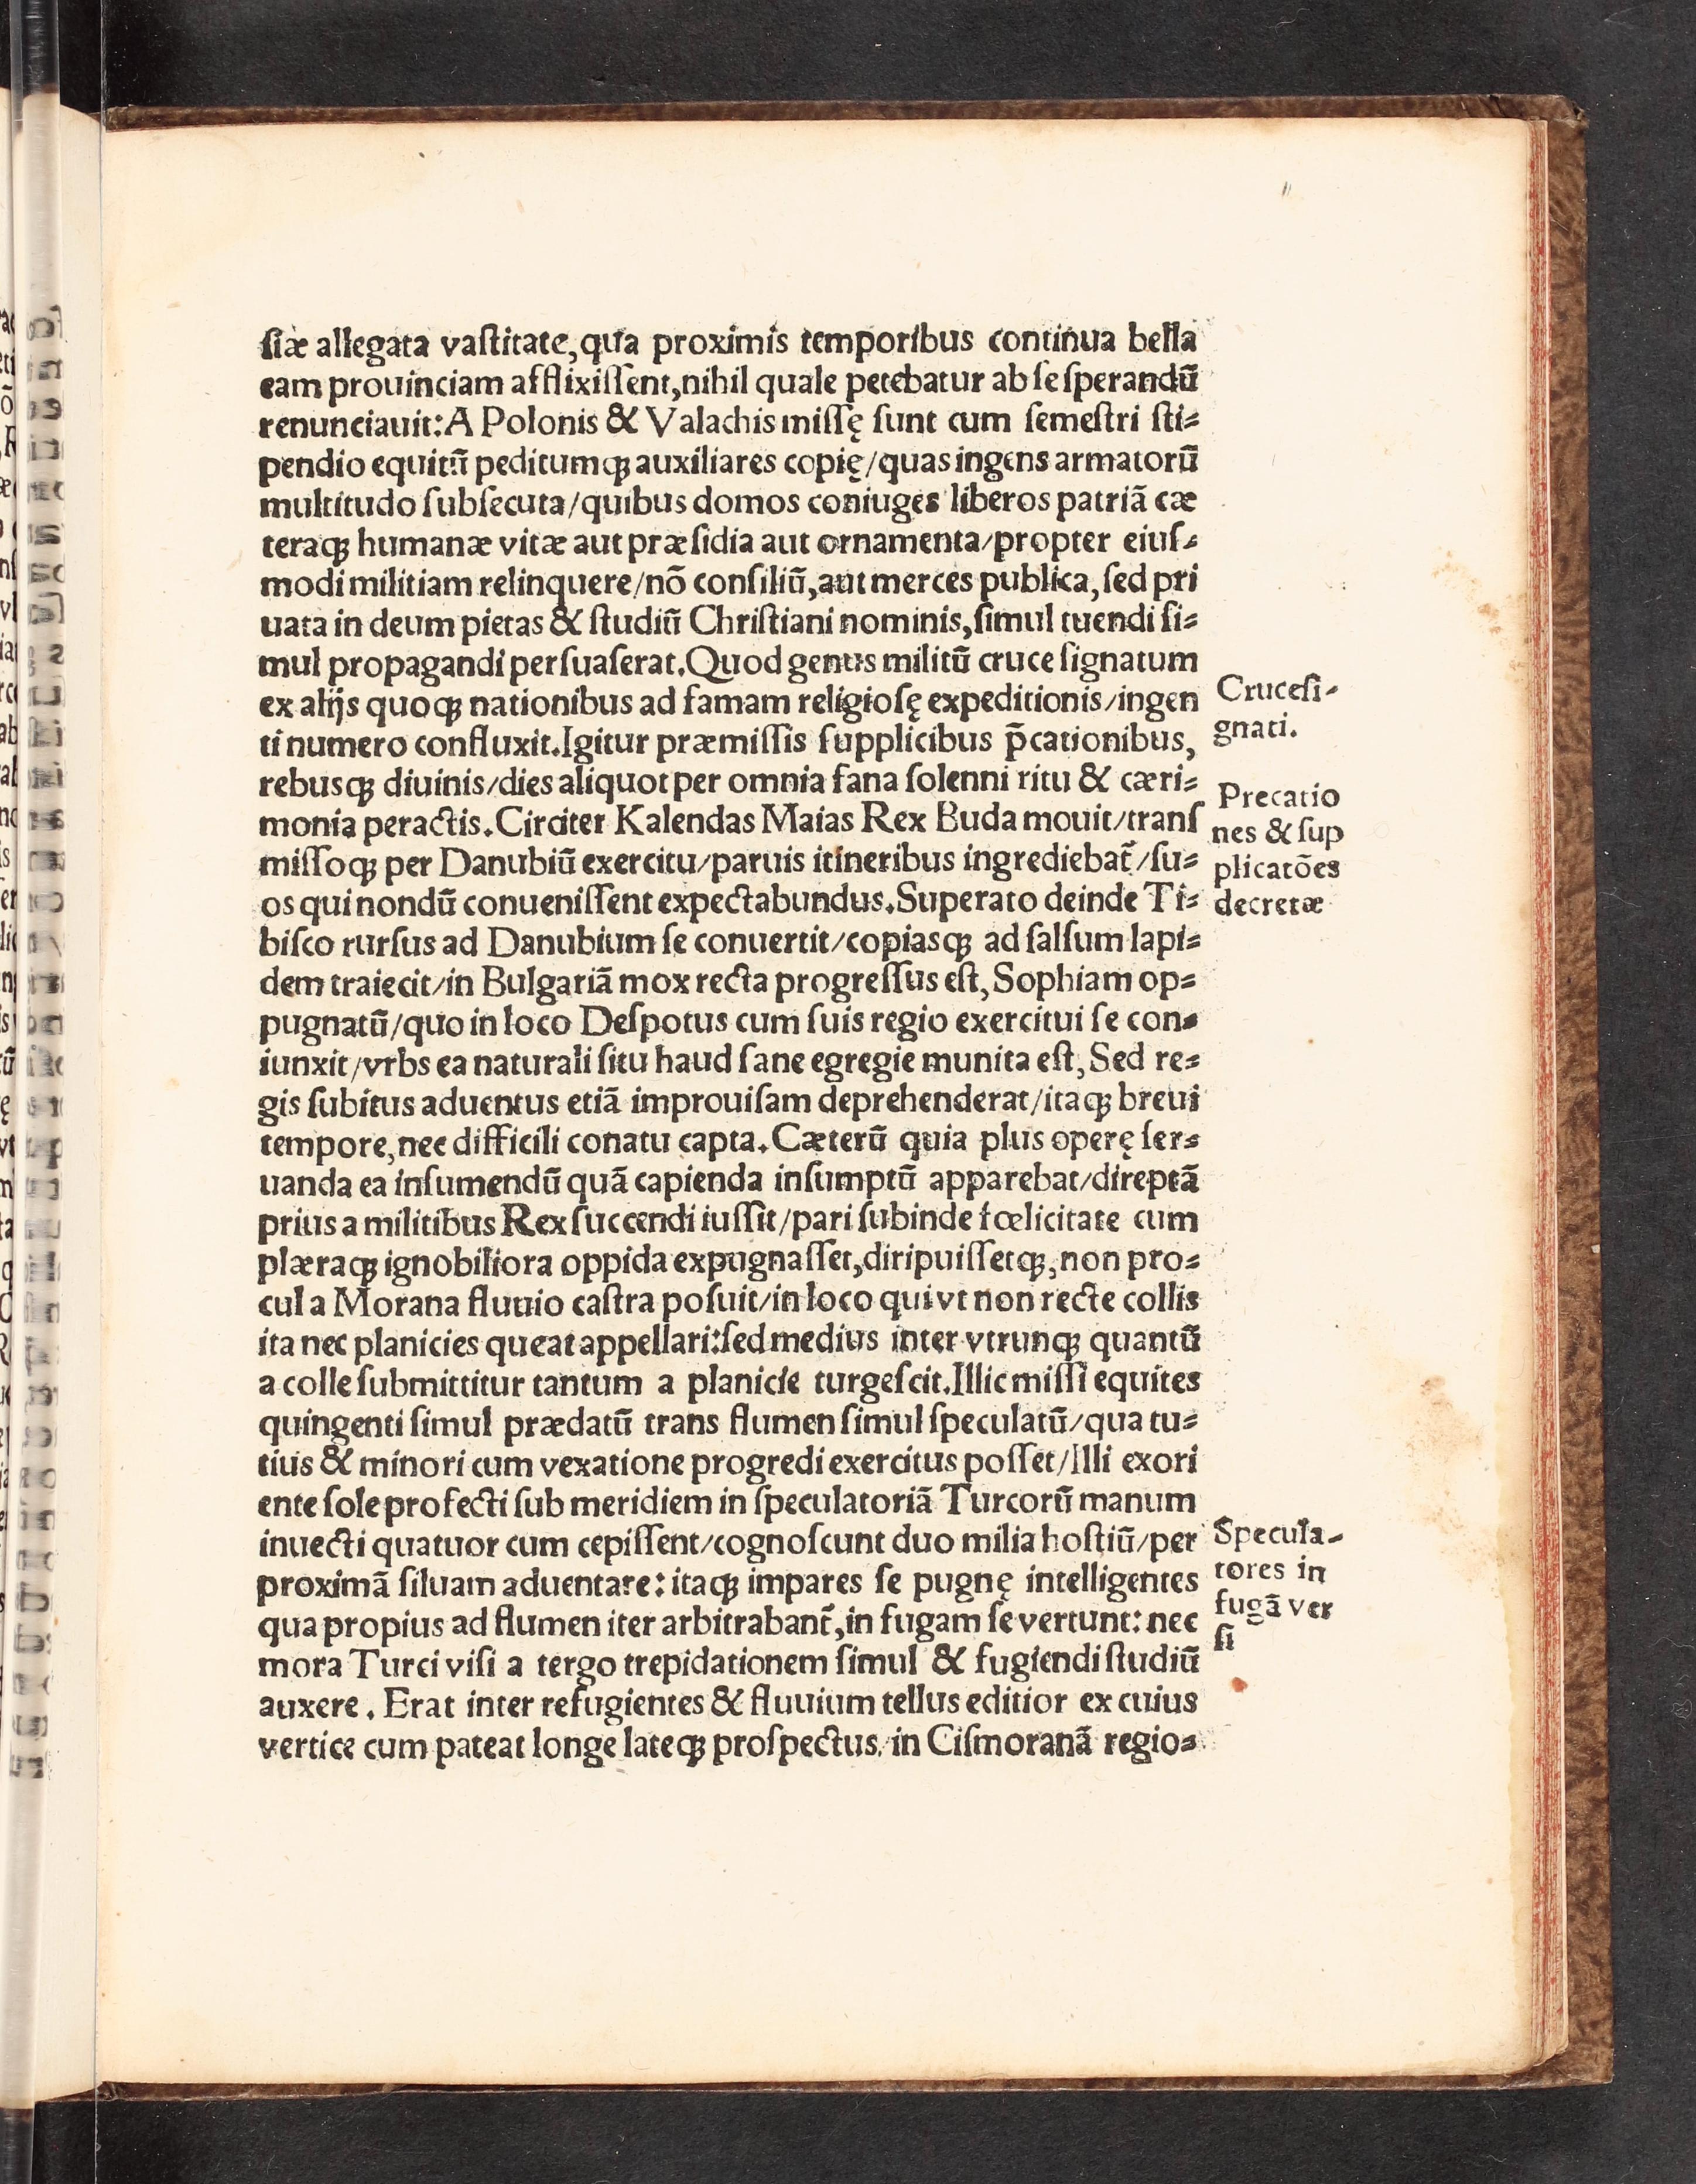 ſiæ allegata vaſtitate, qua proximis temporibus continua bella
eam prouinciam afflixiſſent, nihil quale petebatur ab ſe ſperandū
renunciauit: A Polonis & Valachis miſſę ſunt cum ſemeſtri ſti⸗
pendio equitū peditumqꝫ auxiliares copię/quas ingens armatorū
multitudo ſubſecuta/quibus domos coniuges liberos patriā cæ
teraqꝫ humanæ vitæ aut præſidia aut ornamenta/propter eiuſ⸗
modi militiam relinquere/nō conſiliū, aut merces publica, ſed pri
uata in deum pietas & ſtudiū Chriſtiani nominis, ſimul tuendi ſi⸗
mul propagandi perſuaſerat. Quod genus militū cruce ſignatum
ex alijs quoqꝫ nationibus ad famam religioſę expeditionis/ingen
ti numero confluxit. Igitur præmiſſis ſupplicibus p̄cationibus,
rebusqꝫ diuinis/dies aliquot per omnia fana ſolenni ritu & cæri⸗
monia peractis. Circiter Kalendas Maias Rex Buda mouit/tranſ
miſſoqꝫ per Danubiū exercitu/paruis itineribus ingrediebat̄/ſu⸗
os qui nondū conueniſſent expectabundus. Superato deinde Ti⸗
biſco rurſus ad Danubium ſe conuertit/copiasqꝫ ad ſalſum lapi⸗
dem traiecit/in Bulgariā mox recta progreſſus eſt, Sophiam op⸗
pugnatū/quo in loco Deſpotus cum ſuis regio exercitui ſe con⸗
iunxit/vrbs ea naturali ſitu haud ſane egregie munita eſt, Sed re⸗
gis ſubitus aduentus etiā improuiſam deprehenderat/itaqꝫ breui
tempore, nec difficili conatu capta. Cæterū quia plus operę ſer⸗
uanda ea inſumendū quā capienda inſumptū apparebat/direptā
prius a militibus Rex ſuccendi iuſſit/pari ſubinde fœlicitate cum
plæraqꝫ ignobiliora oppida expugnaſſet, diripuiſſetqꝫ, non pro⸗
cul a Morana fluuio caſtra poſuit/in loco qui vt non recte collis
ita nec planicies queat appellari: ſed medius inter vtrunqꝫ quantū
a colle ſubmittitur tantum a planicie turgeſcit. Illic miſſi equites
quingenti ſimul prædatū trans flumen ſimul ſpeculatū/qua tu⸗
tius & minori cum vexatione progredi exercitus poſſet/Illi exori
ente ſole profecti ſub meridiem in ſpeculatoriā Turcorū manum
inuecti quatuor cum cepiſſent/cognoſcunt duo milia hoſtiū/per
proximā ſiluam aduentare: itaqꝫ impares ſe pugnę intelligentes
qua propius ad flumen iter arbitrabant̄, in fugam ſe vertunt: nec
mora Turci viſi a tergo trepidationem ſimul & fugiendi ſtudiū
auxere. Erat inter refugientes & fluuium tellus editior ex cuius
vertice cum pateat longe lateqꝫ proſpectus/in Ciſmoranā regio⸗
Cruceſi⸗
gnati.
Precatio
nes & ſup
plicatōes
decretæ
Specula⸗
tores in
fugā ver
ſi